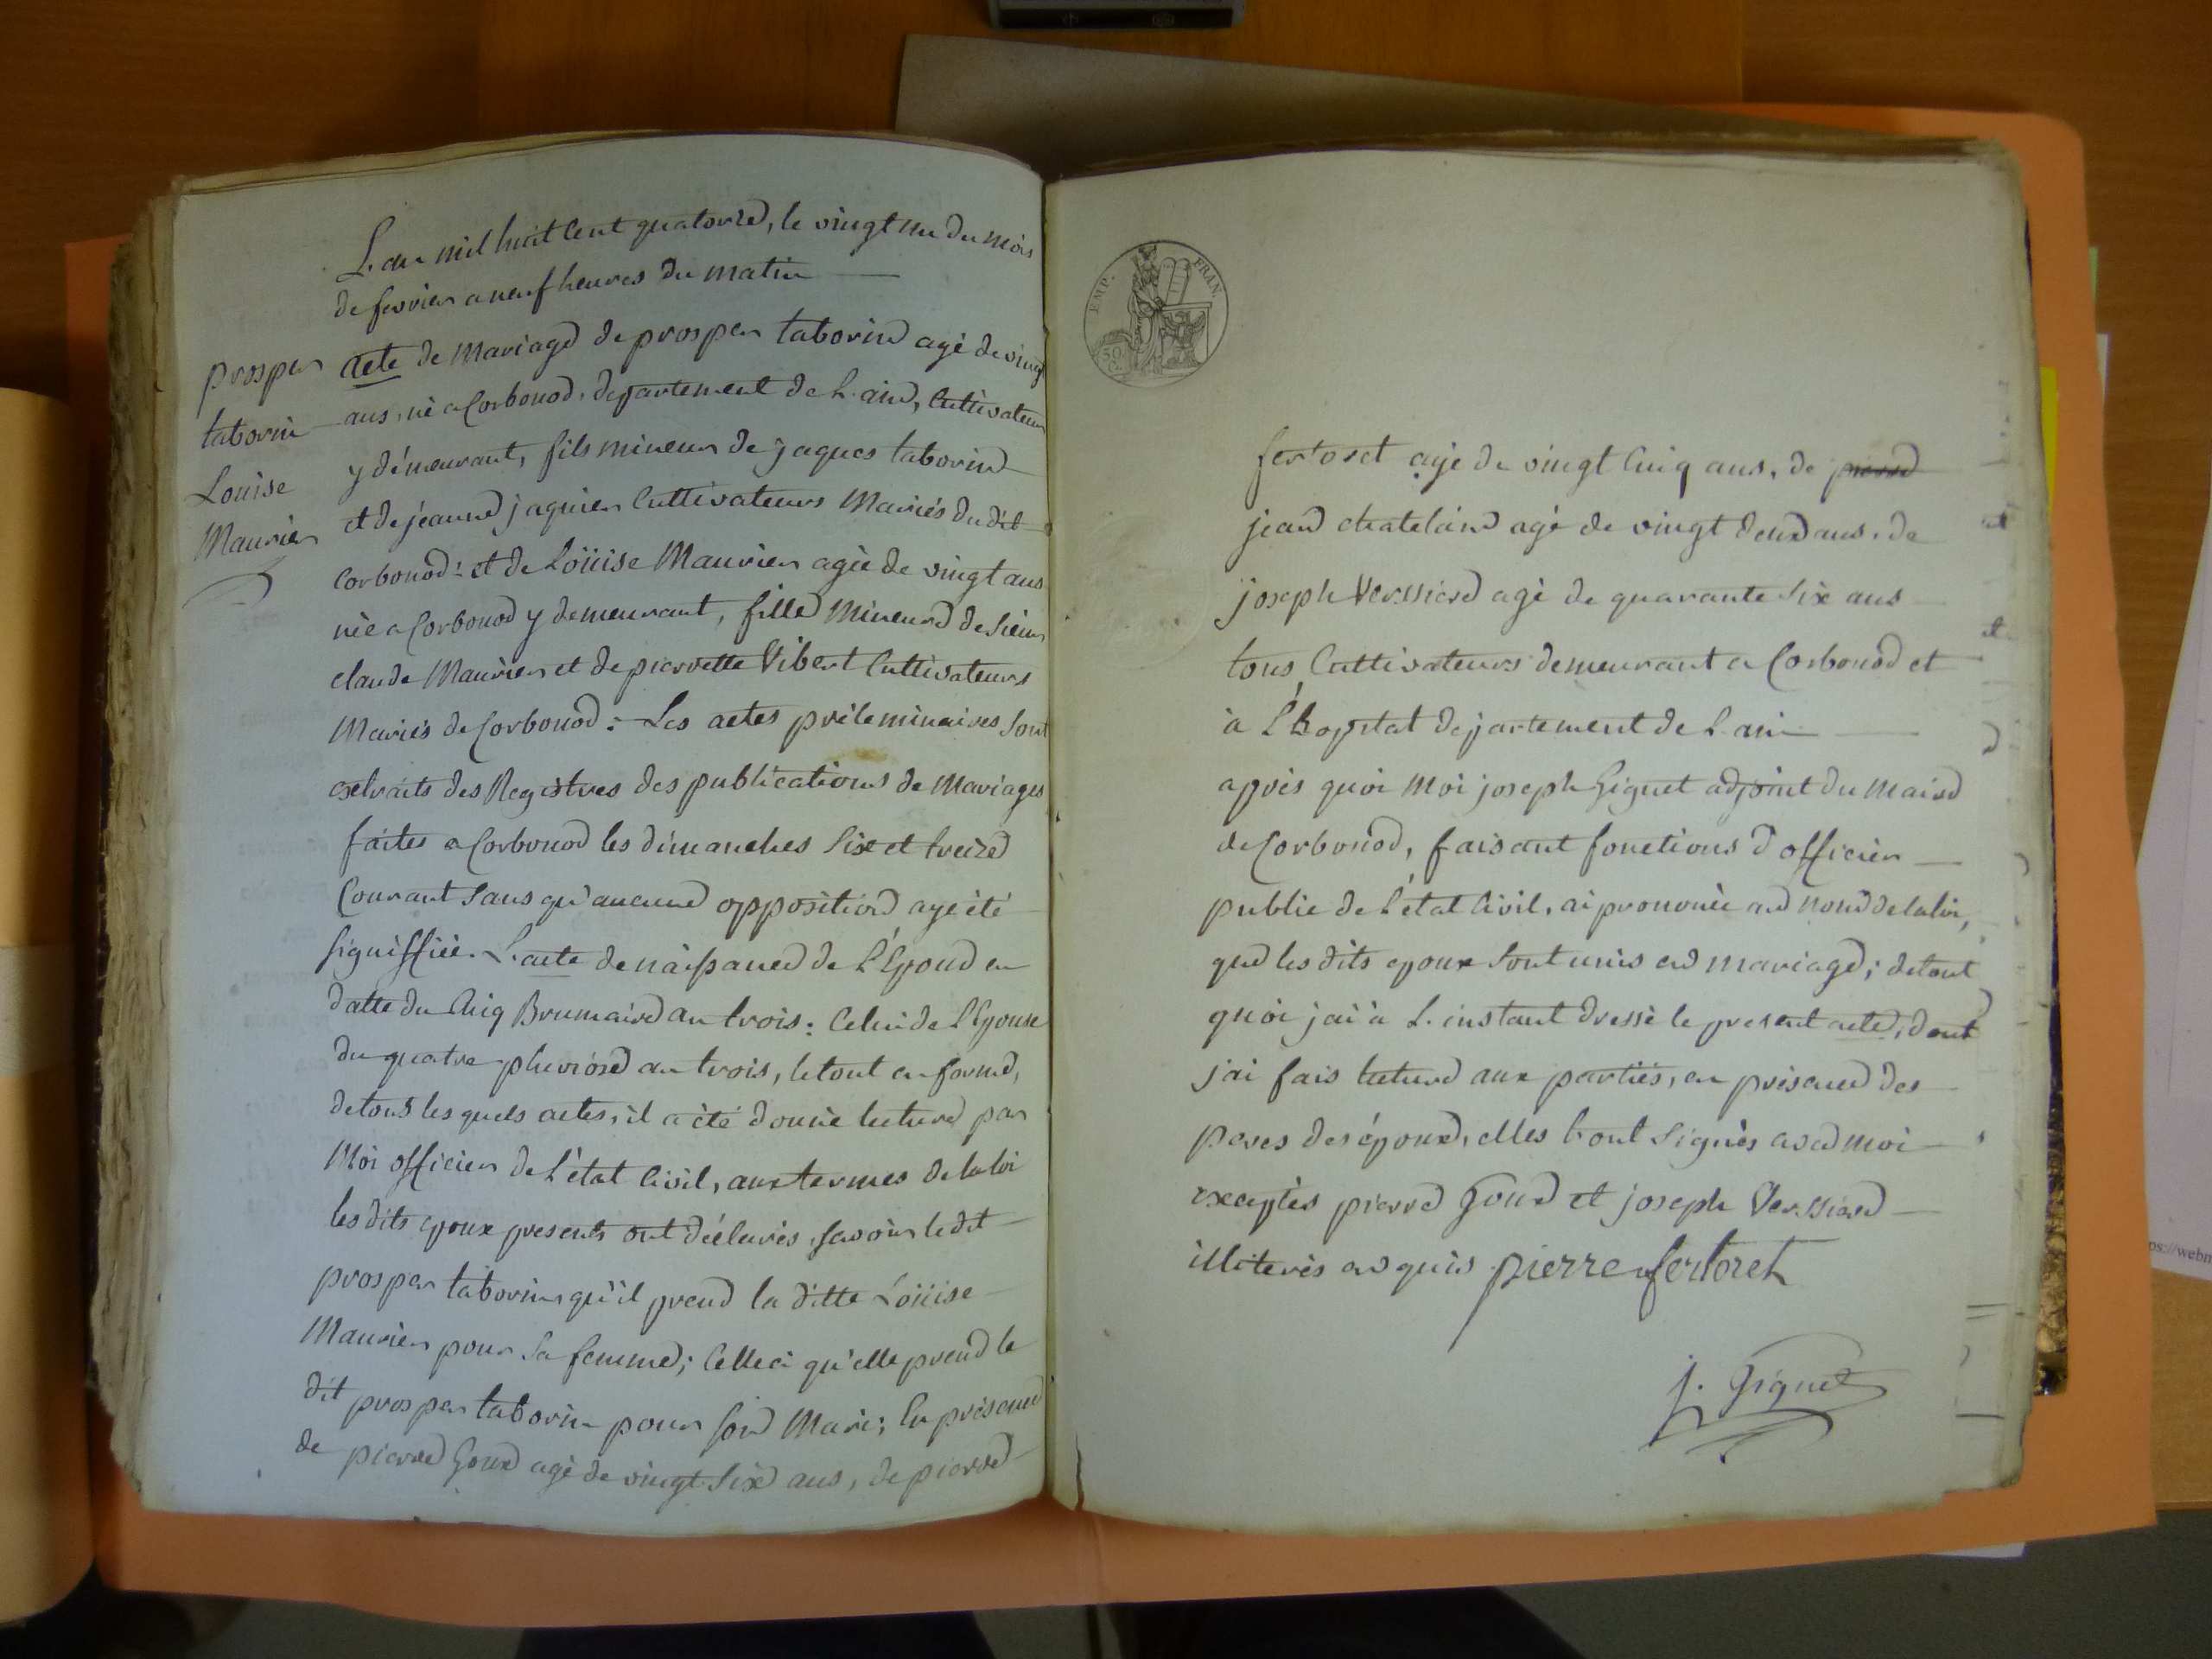 L'an mil huit Cent quatorze, le vingt un du mois
de fevrier a neuf heures du matin
prosper
taborin
Louise
Maurier
acte de Mariage de prosper taborin agé de vingt
ans, né a Corbonod, departement de L'ain, Cultivateur
y démeurant, fils mineur de jaques taborin
et de jeanne jaquier Cultivateurs Mariés du dit
Corbonod: et de Loüise Maurier agée de vingt ans
née a Corbonod y demeurant, fille Mineure de Sieur
claude Maurier et de pierrette Vibert Cultivateurs
Mariés de Corbonod: Les actes préleminaires Sont
extraits des Registres des publications de Mariages
faites a Corbonod les dimanches Six et treize
Courant Sans qu'aucune opposition aye été
signiffiée. L'acte de naissance de L'Epoux en
datte du Cinq Brumaire an trois: Celui de L'Epouse
du quatre pluviôse an trois, le tout en forme,
de tous les quels actes, il a été donné lecture par
Moi officier de L'état Civil, aux termes de la loi
les dits epoux presents ont déclarés, savoir le dit
prosper taborin qu'il prend la ditte Loüise
Maurier pour Sa femme; Celle ci qu'elle prend le
dit prosper taborin pour son Mari; En présence
de pierre Goux agé de vingt Six ans, de pierre
EMP. FRAN.
50 C.
fertoret agé de vingt Cinq ans, de pierre
jean chatelain agé de vingt deux ans, de
joseph Verssiere agé de quarante Six ans
tous Cultivateurs demeurant a Corbonod et
à L'hopital departement de L'ain
après quoi Moi joseph Giguet adjoint du Maire
de Corbonod, faisant fonctions d'officier
public de L'état Civil, ai prononcé au nom de la loi,
que les dits epoux Sont unis en mariage; de tout
quoi jai à L'instant dressé le present acte, dont
j'ai fais lecture aux partiës, en présence des
peres des époux, elles L'ont Signés avec moi
exceptés pierre Goux et joseph Verssiere
illiterés enquis pierre fertoret
j. Giguet